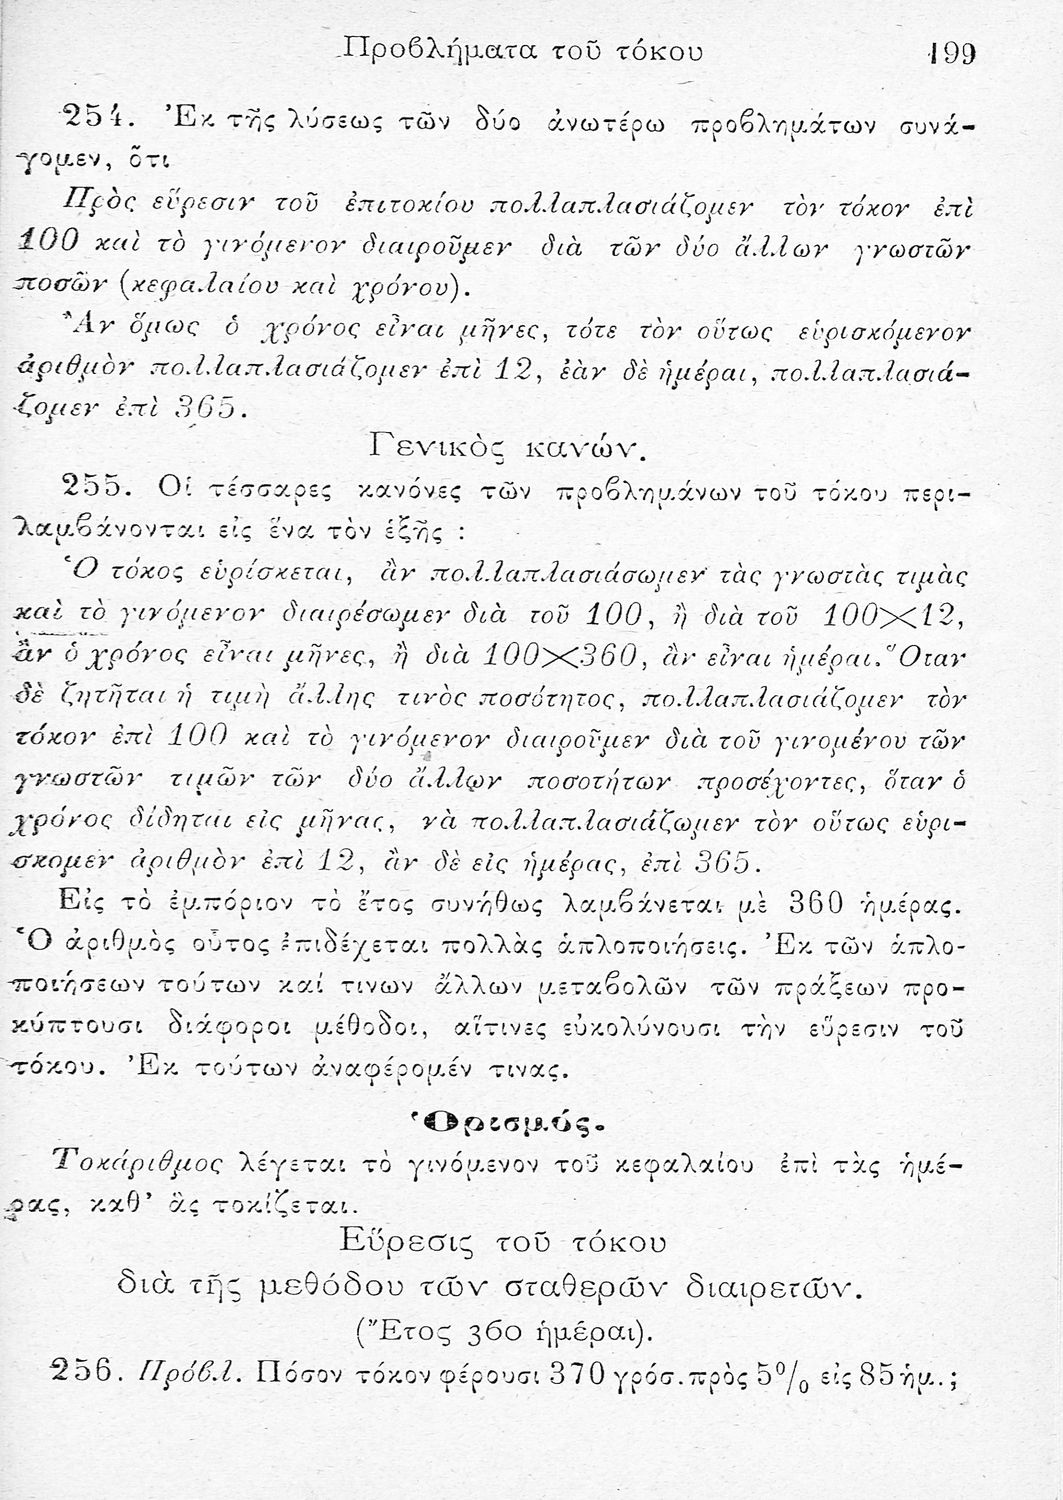 Προβλήματα τοῦ τόκου 199
254. Ἐκ τῆς λύσεως τῶν δύο ἀνωτέρω προβλημάτων συνά-
γομεν, ὅτι
Πρὸς εὕρεσιν τοῦ ἐπιτοκίου πολλαπλασιάζομεν τὸν τόκον ἐπὶ
100 καὶ τὸ γινόμενον διαιροῦμεν διὰ τῶν δύο ἄλλων γνωστῶν
ποσῶν (κεφαλαίου καὶ χρόνου).
Ἂν ὅμως ὁ χρόνος εἶναι μῆνες, τότε τὸν οὕτως εὑρισκόμενον
ἀριθμὸν πολλαπλασιάζομεν ἐπὶ 12, ἐὰν δὲ ἡμέραι, πολλαπλασιά-
ζομεν ἐπὶ 365.
Γενικὸς κανών.
255. Οἱ τέσσαρες κανόνες τῶν προβλημάνων τοῦ τόκου περι-
λαμβάνονται εἰς ἕνα τὸν ἑξῆς :
Ὁ τόκος εὑρίσκεται, ἂν πολλαπλασιάσωμεν τὰς γνωστὰς τιμὰς
καὶ τὸ γινόμενον διαιρέσωμεν διὰ τοῦ 100, ἢ διὰ τοῦ 100×12,
ἂν ὁ χρόνος εἶναι μῆνες, ἢ διὰ 100×360, ἂν εἶναι ἡμέραι. Ὅταν
δὲ ζητῆται ἡ τιμὴ ἄλλης τινὸς ποσότητος, πολλαπλασιάζομεν τὸν
τόκον ἐπὶ 100 καὶ τὸ γινόμενον διαιροῦμεν διὰ τοῦ γινομένου τῶν
γνωστῶν τιμῶν τῶν δύο ἄλλων ποσοτήτων προσέχοντες, ὅταν ὁ
χρόνος δίδηται εἰς μῆνας, νὰ πολλαπλασιάζωμεν τὸν οὕτως εὑρι-
σκομεν ἀριθμὸν ἐπὶ 12, ἂν δὲ εἰς ἡμέρας, ἐπὶ 365.
Εἰς τὸ ἐμπόριον τὸ ἔτος συνήθως λαμβάνεται μὲ 360 ἡμέρας.
Ὁ ἀριθμὸς οὗτος ἐπιδέχεται πολλὰς ἁπλοποιήσεις. Ἐκ τῶν ἁπλο-
ποιήσεων τούτων καί τινων ἄλλων μεταβολῶν τῶν πράξεων προ-
κύπτουσι διάφοροι μέθοδοι, αἵτινες εὐκολύνουσι τὴν εὕρεσιν τοῦ
τόκου. Ἐκ τούτων ἀναφέρομέν τινας.
Ὁρισμός.
Τοκάριθμος λέγεται τὸ γινόμενον τοῦ κεφαλαίου ἐπὶ τὰς ἡμέ-
ρας, καθ’ ἃς τοκίζεται.
Εὕρεσις τοῦ τόκου
διὰ τῆς μεθόδου τῶν σταθερῶν διαιρετῶν.
(Ἔτος 360 ἡμέραι).
256. Πρόβλ. Πόσον τόκον φέρουσι 370 γρόσ. πρὸς 5% εἰς 85 ἡμ. ;